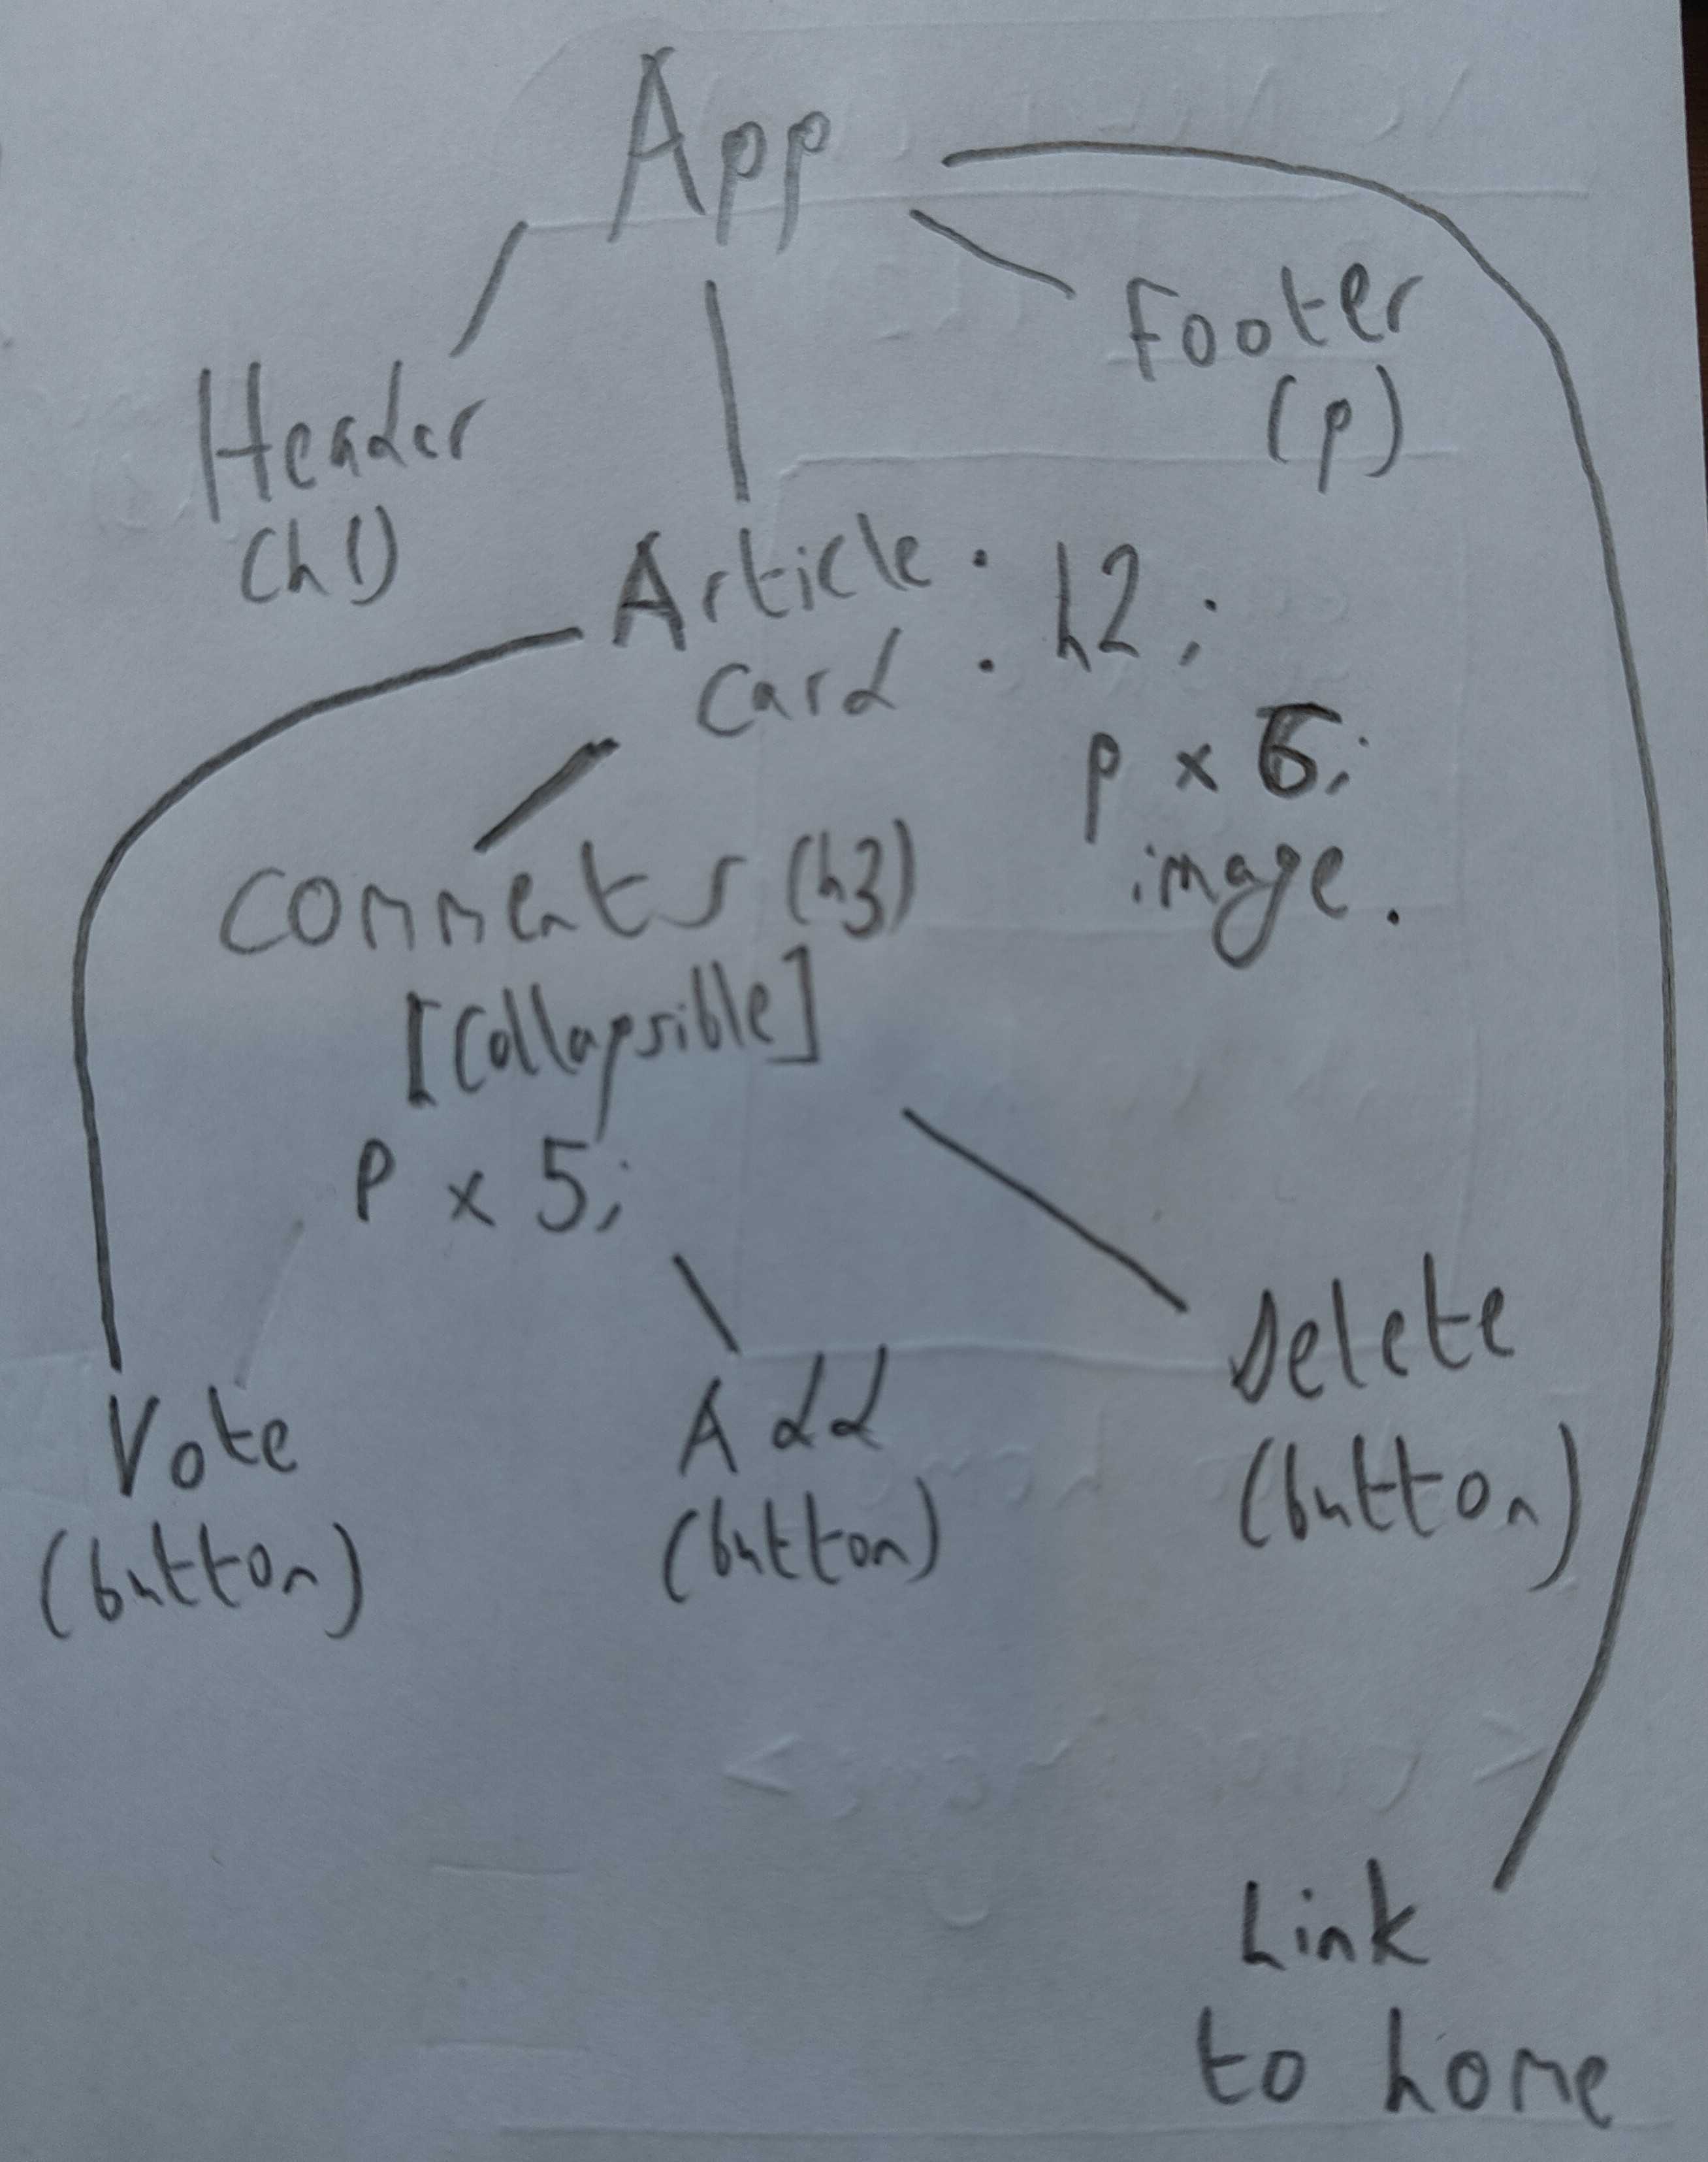 App
Footer
(p)
Header
(h1)
Article
card
: h2;
p x 6;
image.
Comments (h3)
[Collapsible]
P x 5;
Vote
(button)
Add
(button)
Delete
(button)
Link
to home